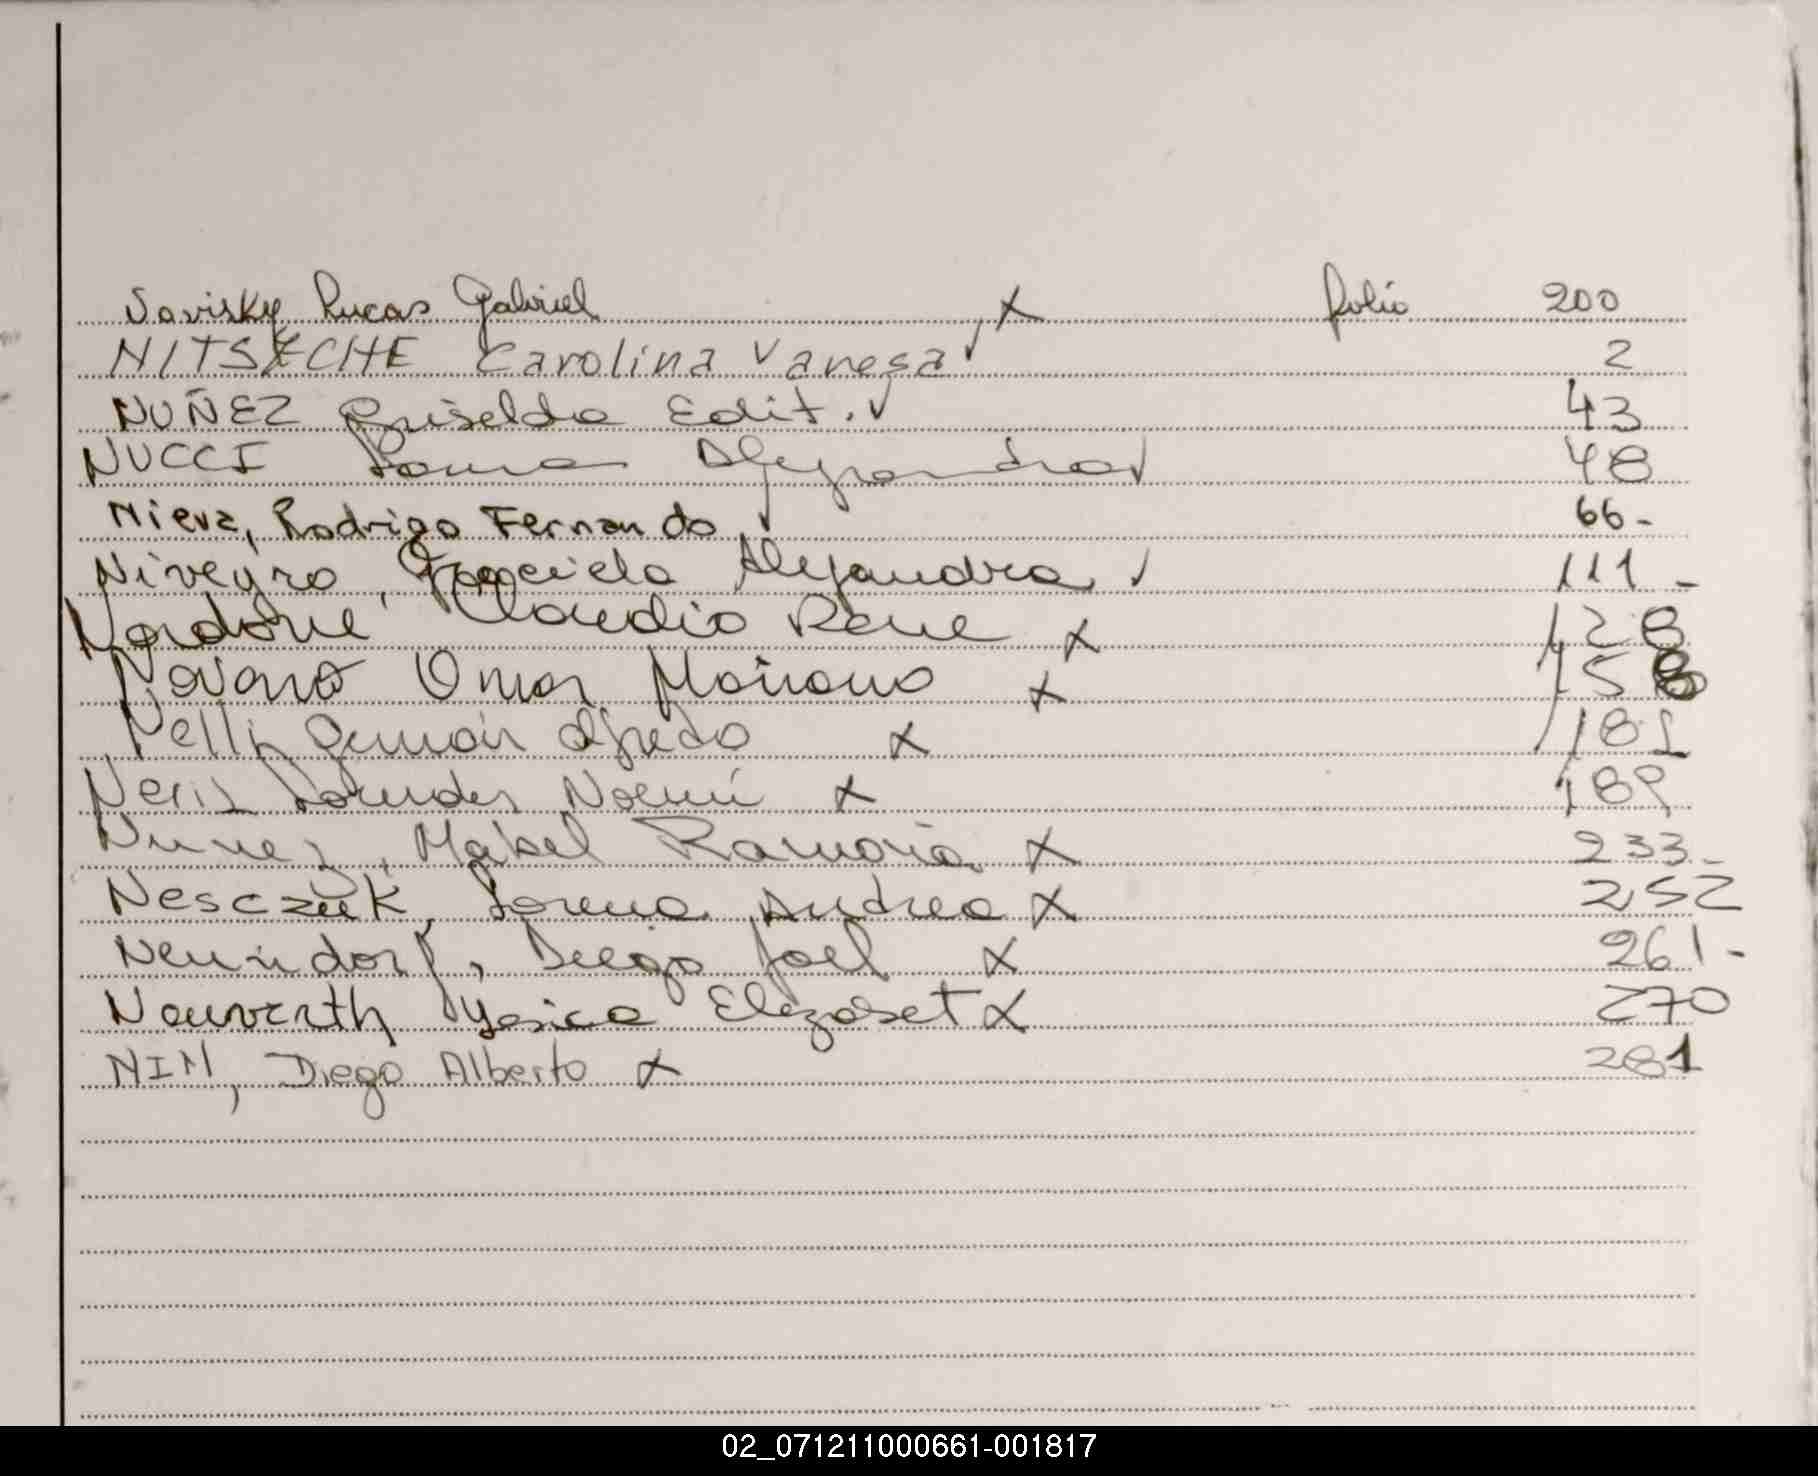 Savisky Lucas Gabriel x folio 200
NITSCHE Carolina Vanesa ✓ 2
NUÑEZ Griselda Edit. ✓ 43
NUCCI Alejandra ✓ 48
Nieva, Rodrigo Fernando ✓ 66-
Niveyro, Graciela Alejandra ✓ 111-
Nardone Claudio Rene x 128
Navarro Omar Mariano x 158
Nelli Germán Alfredo x 181
Neris Lourdes Noemí x 189
Nunez, Mabel Ramona x 233-
Nesczuk, Lorena Andrea x 252
Neundorf, Diego Joel x 261-
Yesica Elizabet x 270
NIM, Diego Alberto x 281
02_071211000661-001817